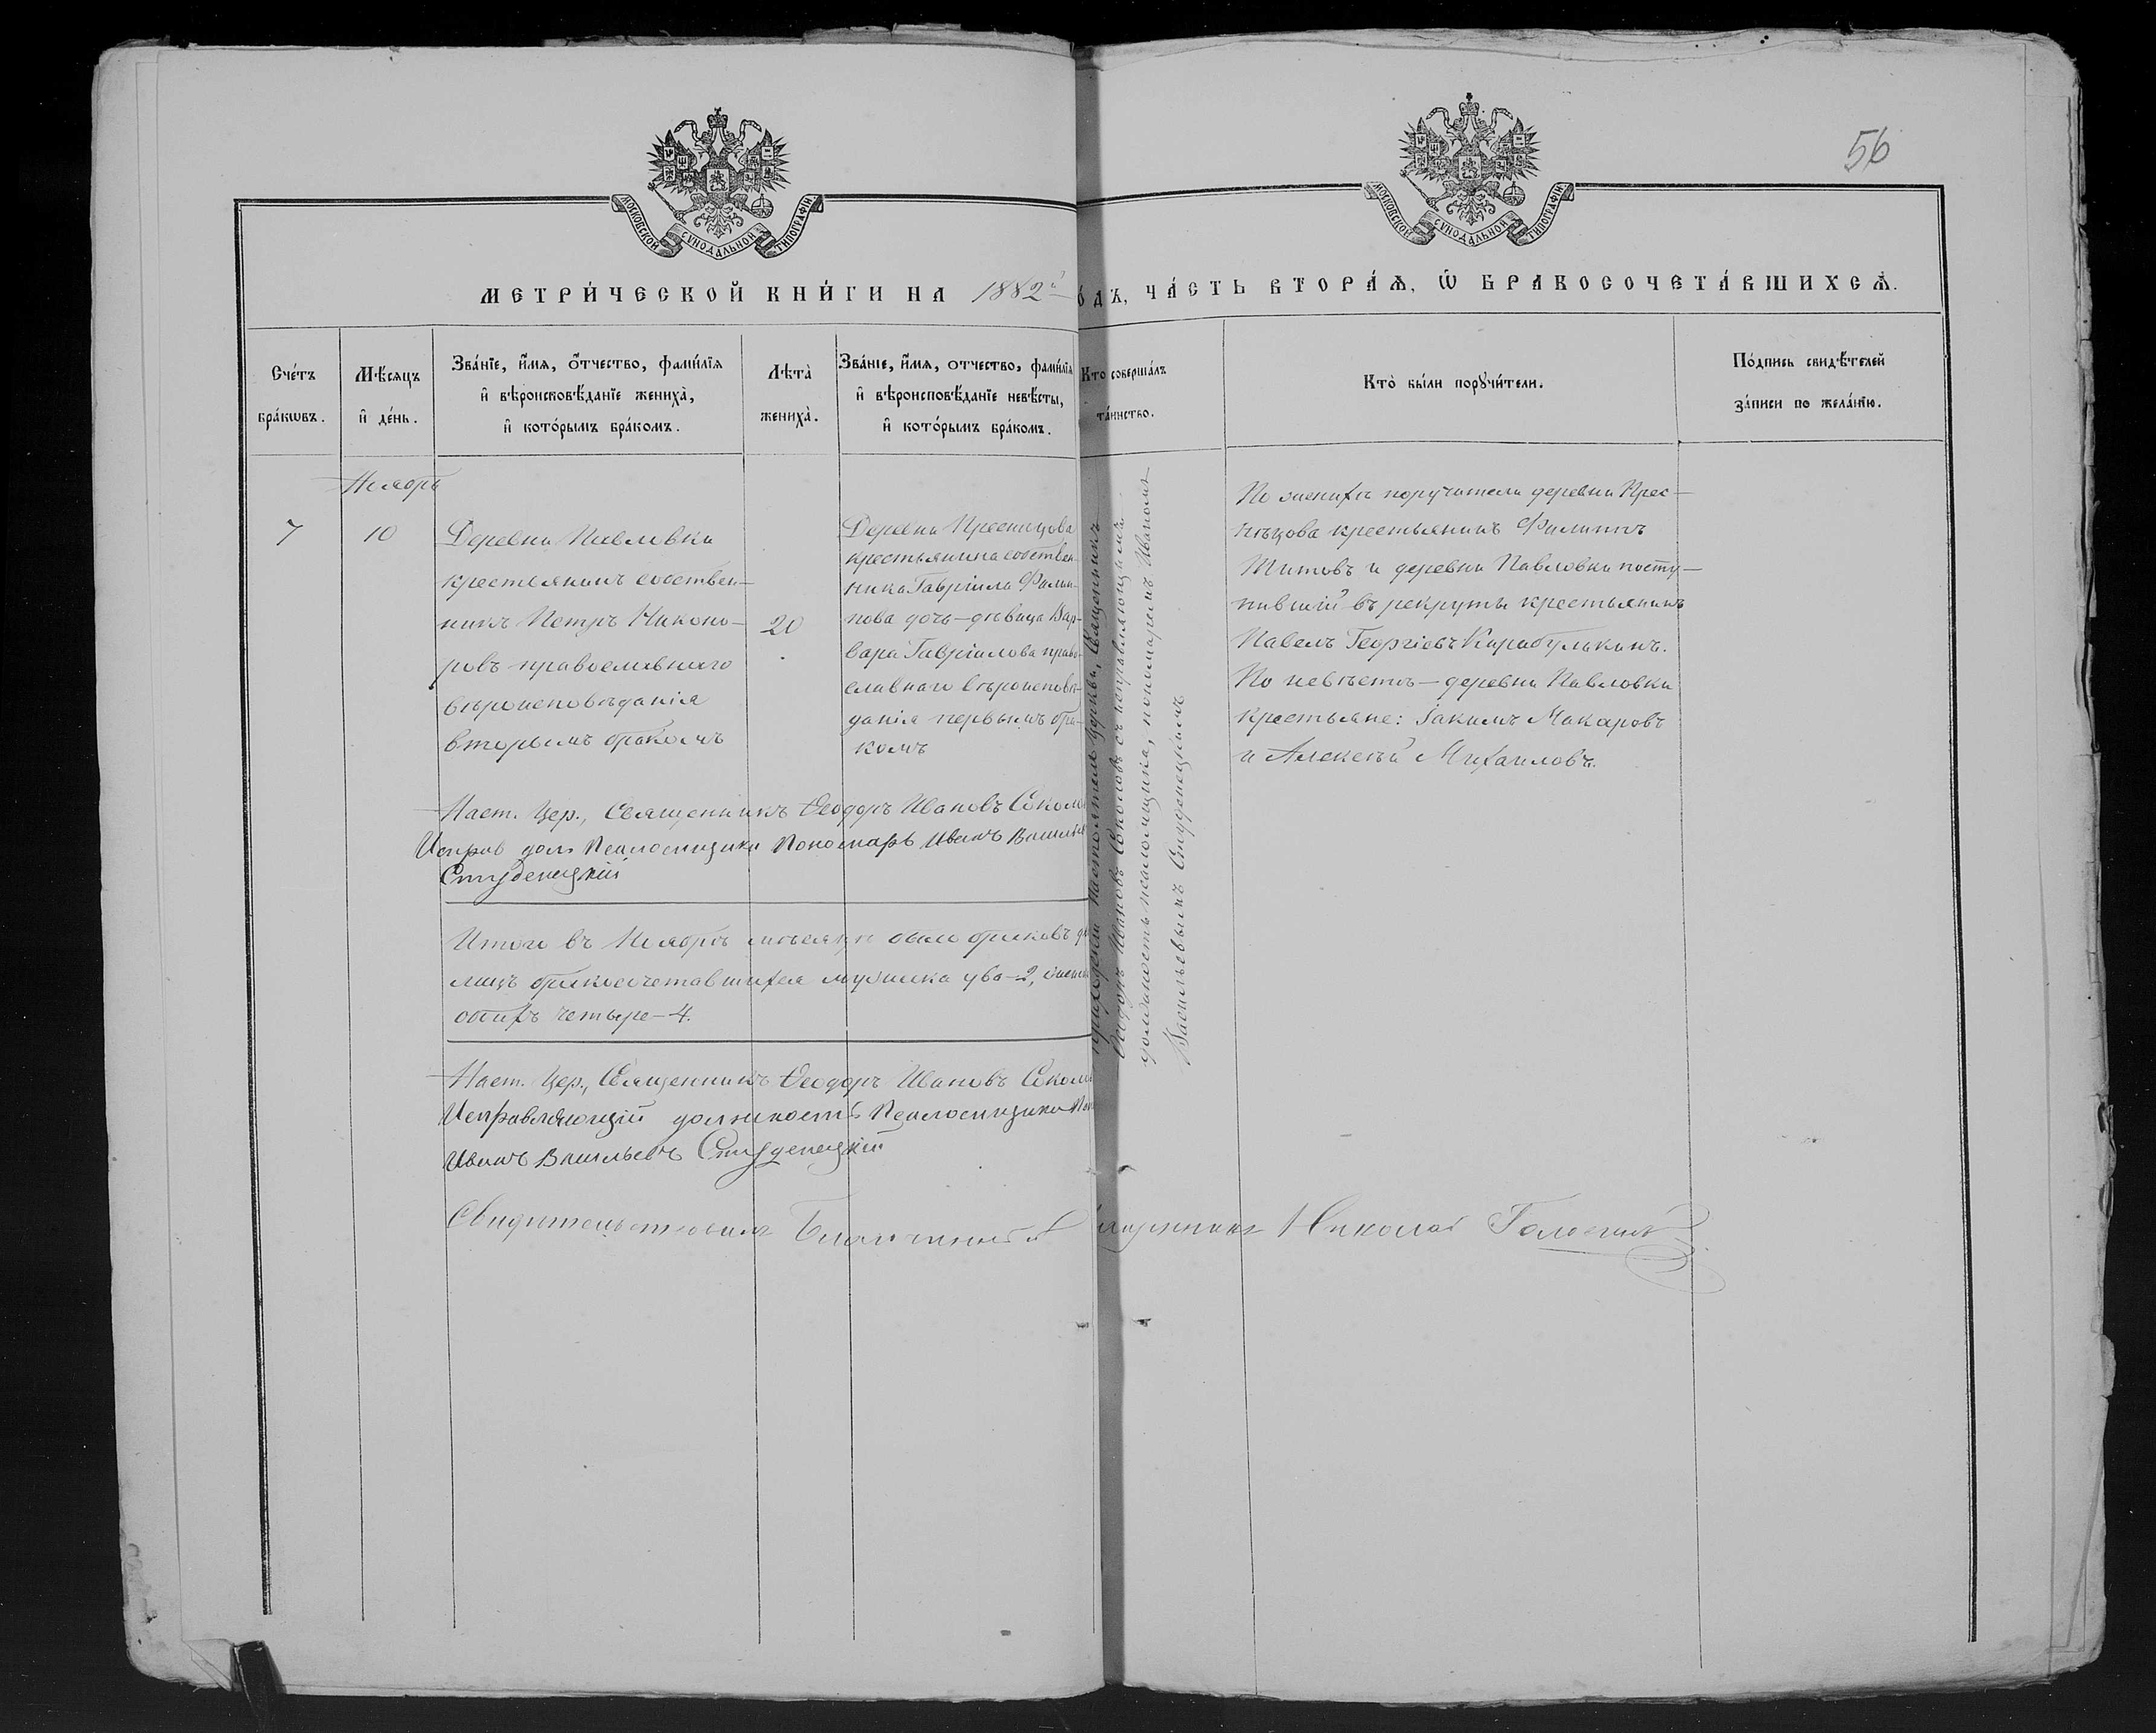 56
МОСКОВСКОЙ СѴНОДАЛЬНОЙ ТИПОГРАФІИ
МОСКОВСКОЙ СѴНОДАЛЬНОЙ ТИПОГРАФІИ
МЕТРИ́ЧЕСКОЙ КНИ́ГИ НА 1882й
О́ДЪ, ЧА́СТЬ ВТОРА́Ѧ, Ѽ БРАКОСОЧЕТА́ВШИХСѦ.
Сче́тъ
бра́кѡвъ.
Мѣ́сяцъ
и҆ де́нь.
Зва́нїе, и҆́мѧ, ѻ҆́тчество, фамилі́ѧ
и҆ вѣроисповѣ́данїе жениха̀,
и҆ кото́рымъ бра́комъ.
Лѣта̀
жениха̀.
Зва́нїе, и҆́мѧ, отчество, фамилі́ѧ
и҆ вѣроисповѣ́данїе невѣ́сты,
и҆ кото́рымъ бра́комъ.
Кто соверша́лъ
та́инство.
Кто̀ бы́ли порꙋчи́тели.
По́дпись свидѣ́телей
за́писи по жела́нїю.
Ноябрь
7
10
Деревни Павловки
крестьянинъ собствен-
никъ Петръ Никоно-
ровъ православнаго
вѣроисповѣданія
вторымъ бракомъ
20
Деревни
крестьянина собствен-
ника Гавріила Филип-
пова дочь-дѣвица Вар-
вара Гавріилова право-
славнаго вѣроисповѣ-
данія первымъ бра-
комъ
приходской настоятель церкви, Священникъ
Ѳеодоръ Ивановъ Соколовъ съ исправляющимъ
должность псаломщика, пономаремъ Иваномъ
Васильевымъ Студенецкимъ
По женихѣ поручители деревни
крестьянинъ Филиппъ
Титовъ и деревни Павловки посту-
пившій въ рекруты крестьянинъ
Павелъ Георгіевъ Карабулькинъ.
По невѣстѣ-деревни Павловки
крестьяне: Іакимъ Макаровъ
и Алексѣй Михаиловъ.
Наст. Цер., Священникъ Ѳеодоръ Ивановъ Соколо
Исправ долж Псаломщика Пономарь Иванъ Василье
Студенецкій
Итого въ Ноябрѣ мѣсяцѣ было браковъ
лицъ бракосочетавшихся мужеска два-2,
обихъ четыре-4.
Наст. Цер., Священникъ Ѳеодоръ Ивановъ Соколо
Исправляющій должность Псаломщика Пон
Иванъ Васильевъ Студенецкій
Свидѣтельствовалъ Благочинный Священникъ Николай